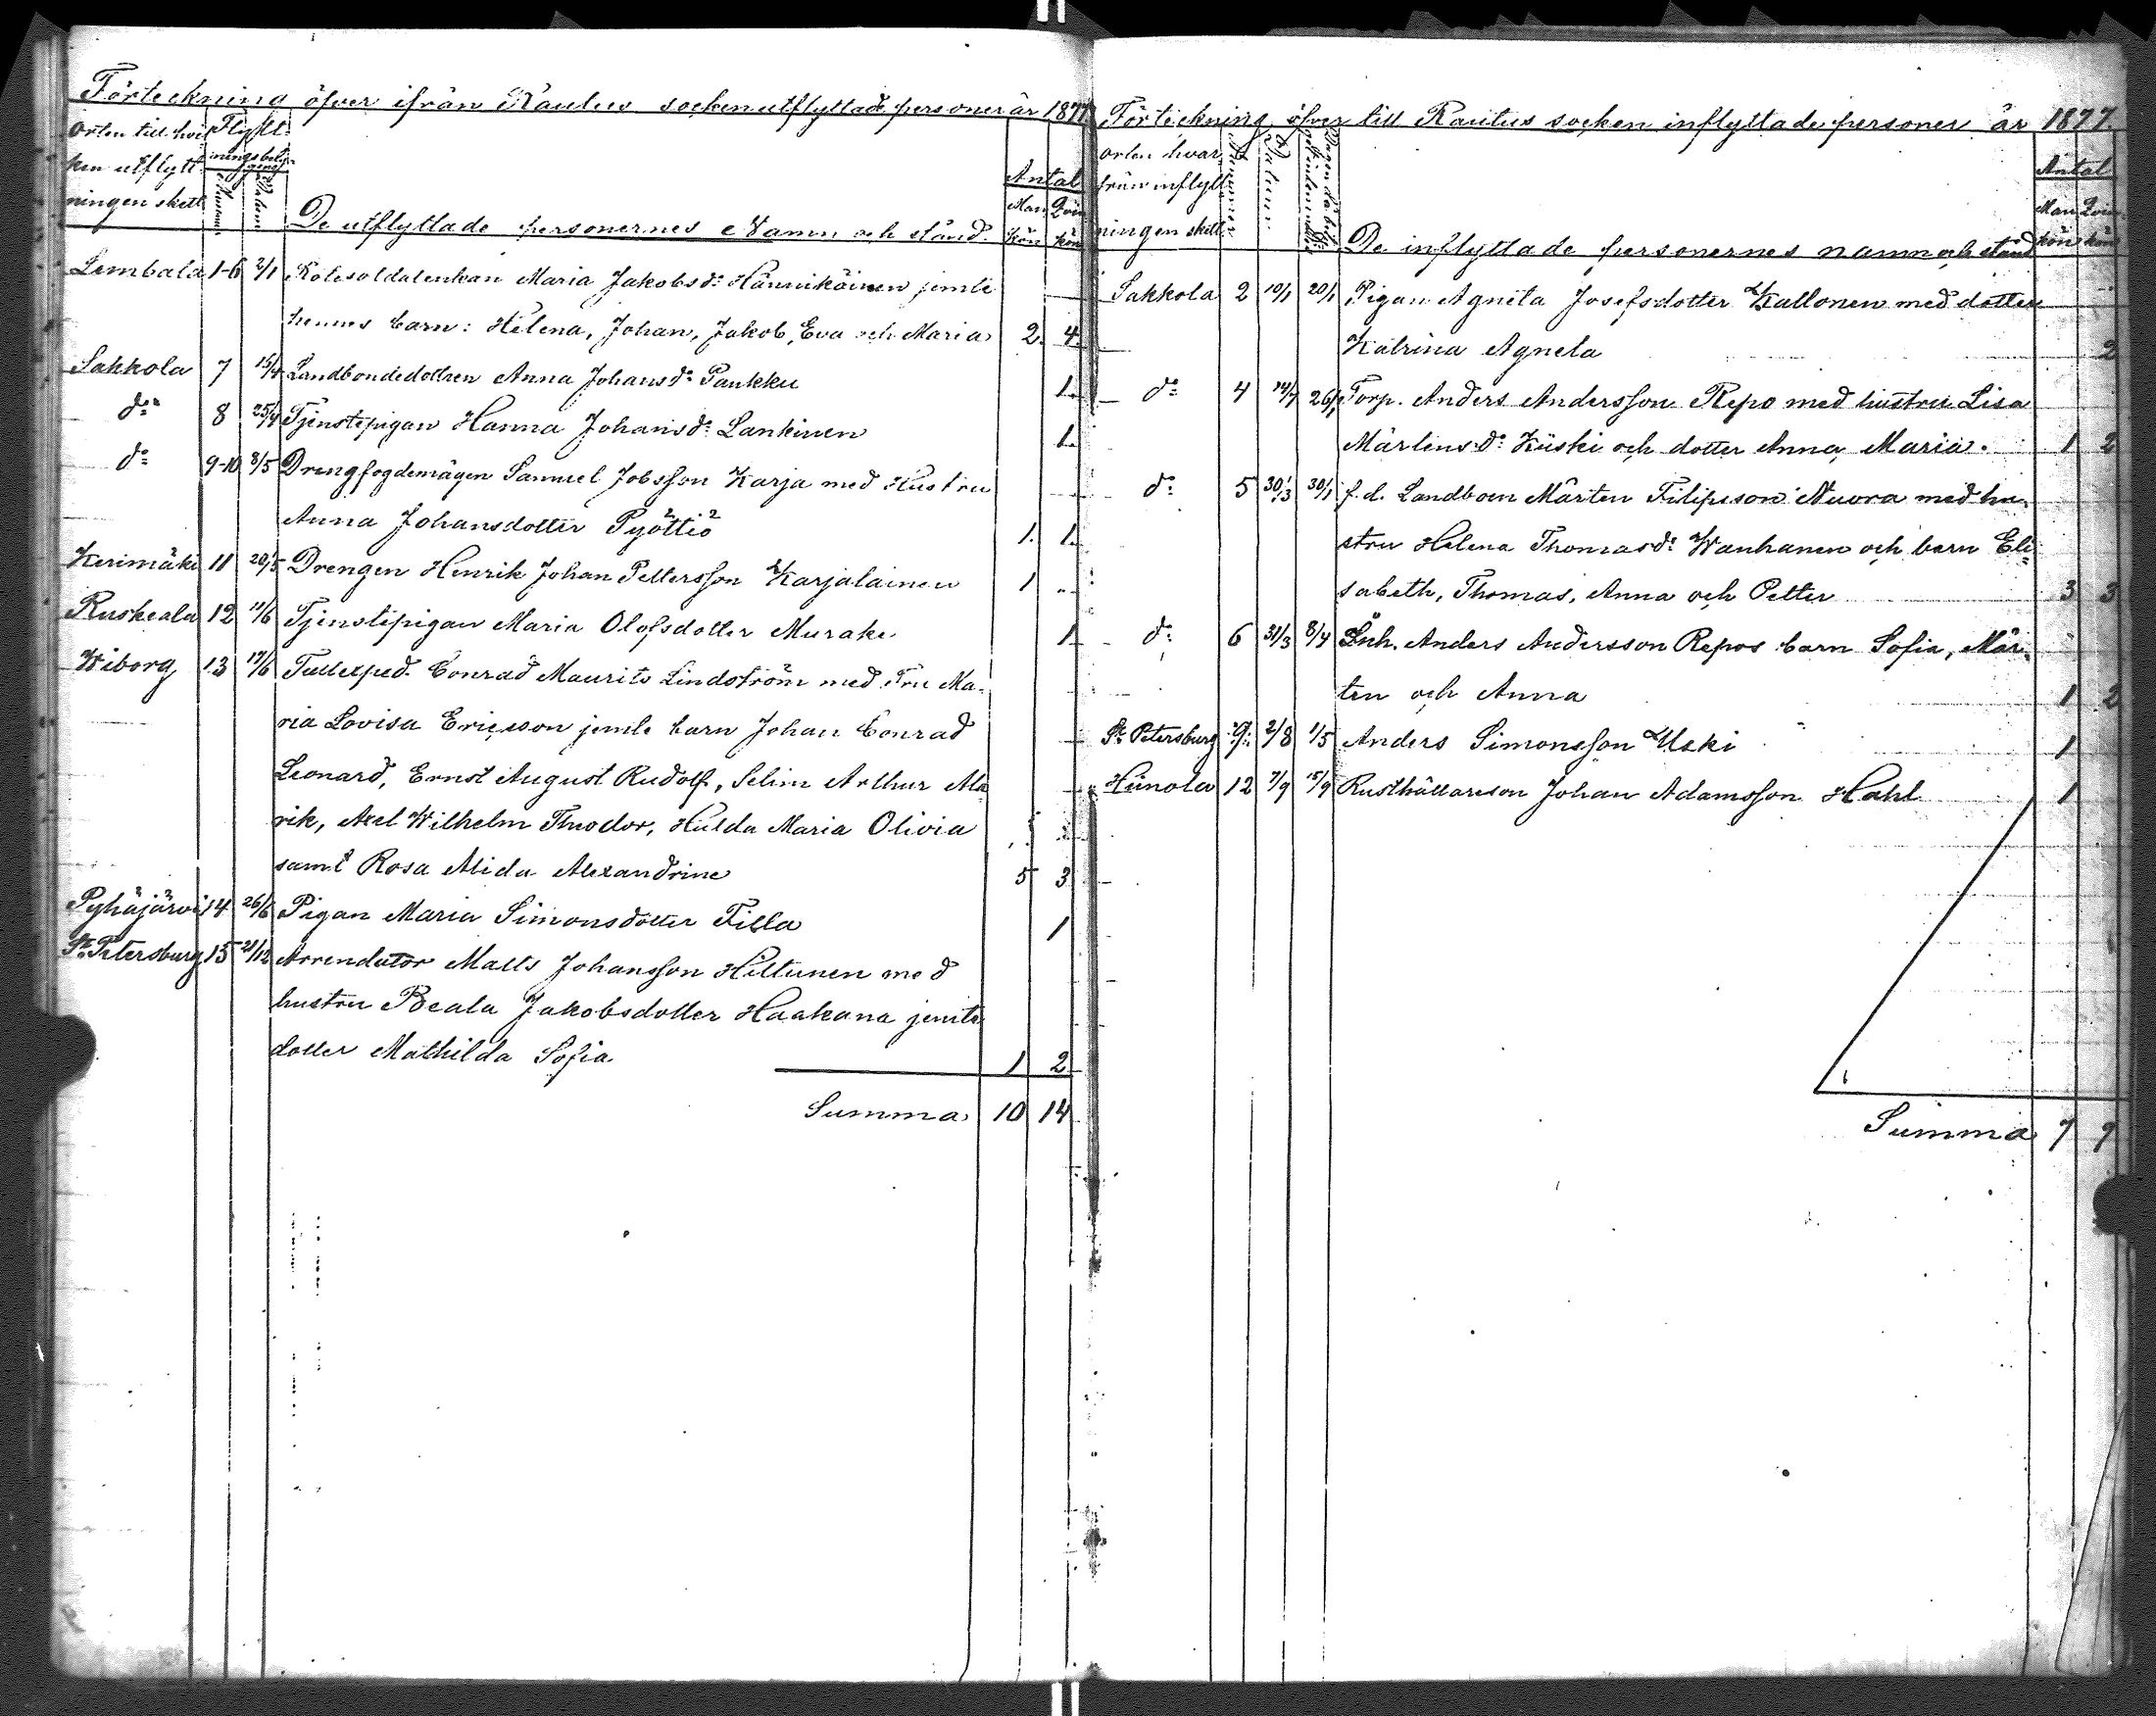 Förteckning öfver ifrån Rautus socken utflyttade personer år 1877.
Orten till hvil
ken utflytt
ningen skett
Flytt
ningsbety
Numro
Datum
De utflyttade personernes Namn och stånd.
Antal
Man kön
Qvin kön
Lembala 1-6 2/1 Rotesoldatenkan Maria Jakobsd:r Hännikäinen jemte
hennes barn: Helena, Johan, Jakob, Eva och Maria 2. 4.
Sakkola 7 15/4 Landbondedottren Anna Johansd:r Paukku 1.
d:o 8 25/4 Tjenstepigan Hanna Johansd:r Lankinen 1.
d:o 9-10 8/5 Drengfogdemågen Samuel Jobsson Karja med Hustru
Anna Johansdotter Pyöttiö 1. 1.
Kerimäki 11 20/5 Drengen Henrik Johan Pettersson Karjalainen 1 "
Ruskeala 12 11/6 Tjenstepigan Maria Olofsdotter Murake 1
Wiborg 13 17/6 Tullexped. Conrad Maurits Lindström med Fru Ma-
ria Lovisa Ericsson jemte barn Johan Conrad
Leonard, Ernst August Rudolf, Selim Arthur Ala
rik, Axel Wilhelm Theodor, Hulda Maria Olivia
samt Rosa Alida Alexandrine 5 3
Pyhäjärvi 14 26/6 Pigan Maria Simonsdotter Filla 1
S:t Petersburg 15 21/12 Arrendator Matts Johansson Hiltunen med
hustru Beata Jakobsdotter Haakana jemte
dotter Mathilda Sofia 1 2
Summa 10 14
Förteckning öfver till Rautus socken inflyttade personer år 1877.
Orten hvar
från inflytt
ningen skett
Datum
De inflyttade personernes namn och stånd
Antal
Man kön
Qvin kön
Sakkola 2 10/1 20/1 Pigan Agneta Josefsdotter Kallonen med dotter
Katrina Agneta 2
d:o 4 14/7 26/7 Torp. Anders Andersson Repo med hustru Lisa
Mårtensd:r Kiiski och dotter Anna Maria. 1 2
d:o 5 30/3 30/1 f. d. Landboen Mårten Filipsson Nuora med hu-
stru Helena Thomasd:r Wanhanen och barn Eli-
sabeth, Thomas, Anna och Petter 3 3
d:o 6 31/3 8/4 Inh. Anders Andersson Repos barn Sofia, Mår-
ten och Anna 1 2
S:t Petersburg 9 2/8 1/5 Anders Simonsson Uski 1
Heinola 12 7/9 15/9 Rusthållareson Johan Adamsson Hahl 1
Summa 7 9